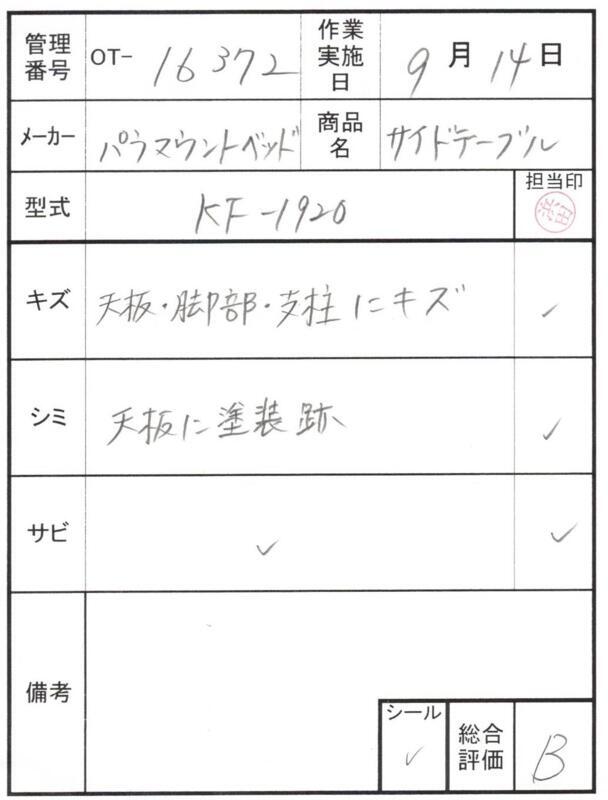 管理番号 OT- 16372 作業実施日 9月14日
メーカー パラマウントベッド 商品名 サイドテーブル
型式 KF-1920 担当印
キズ 天板・脚部・支柱にキズ ✓
シミ 天板に塗装跡 ✓
サビ ✓ ✓
備考
シール ✓ 総合評価 B